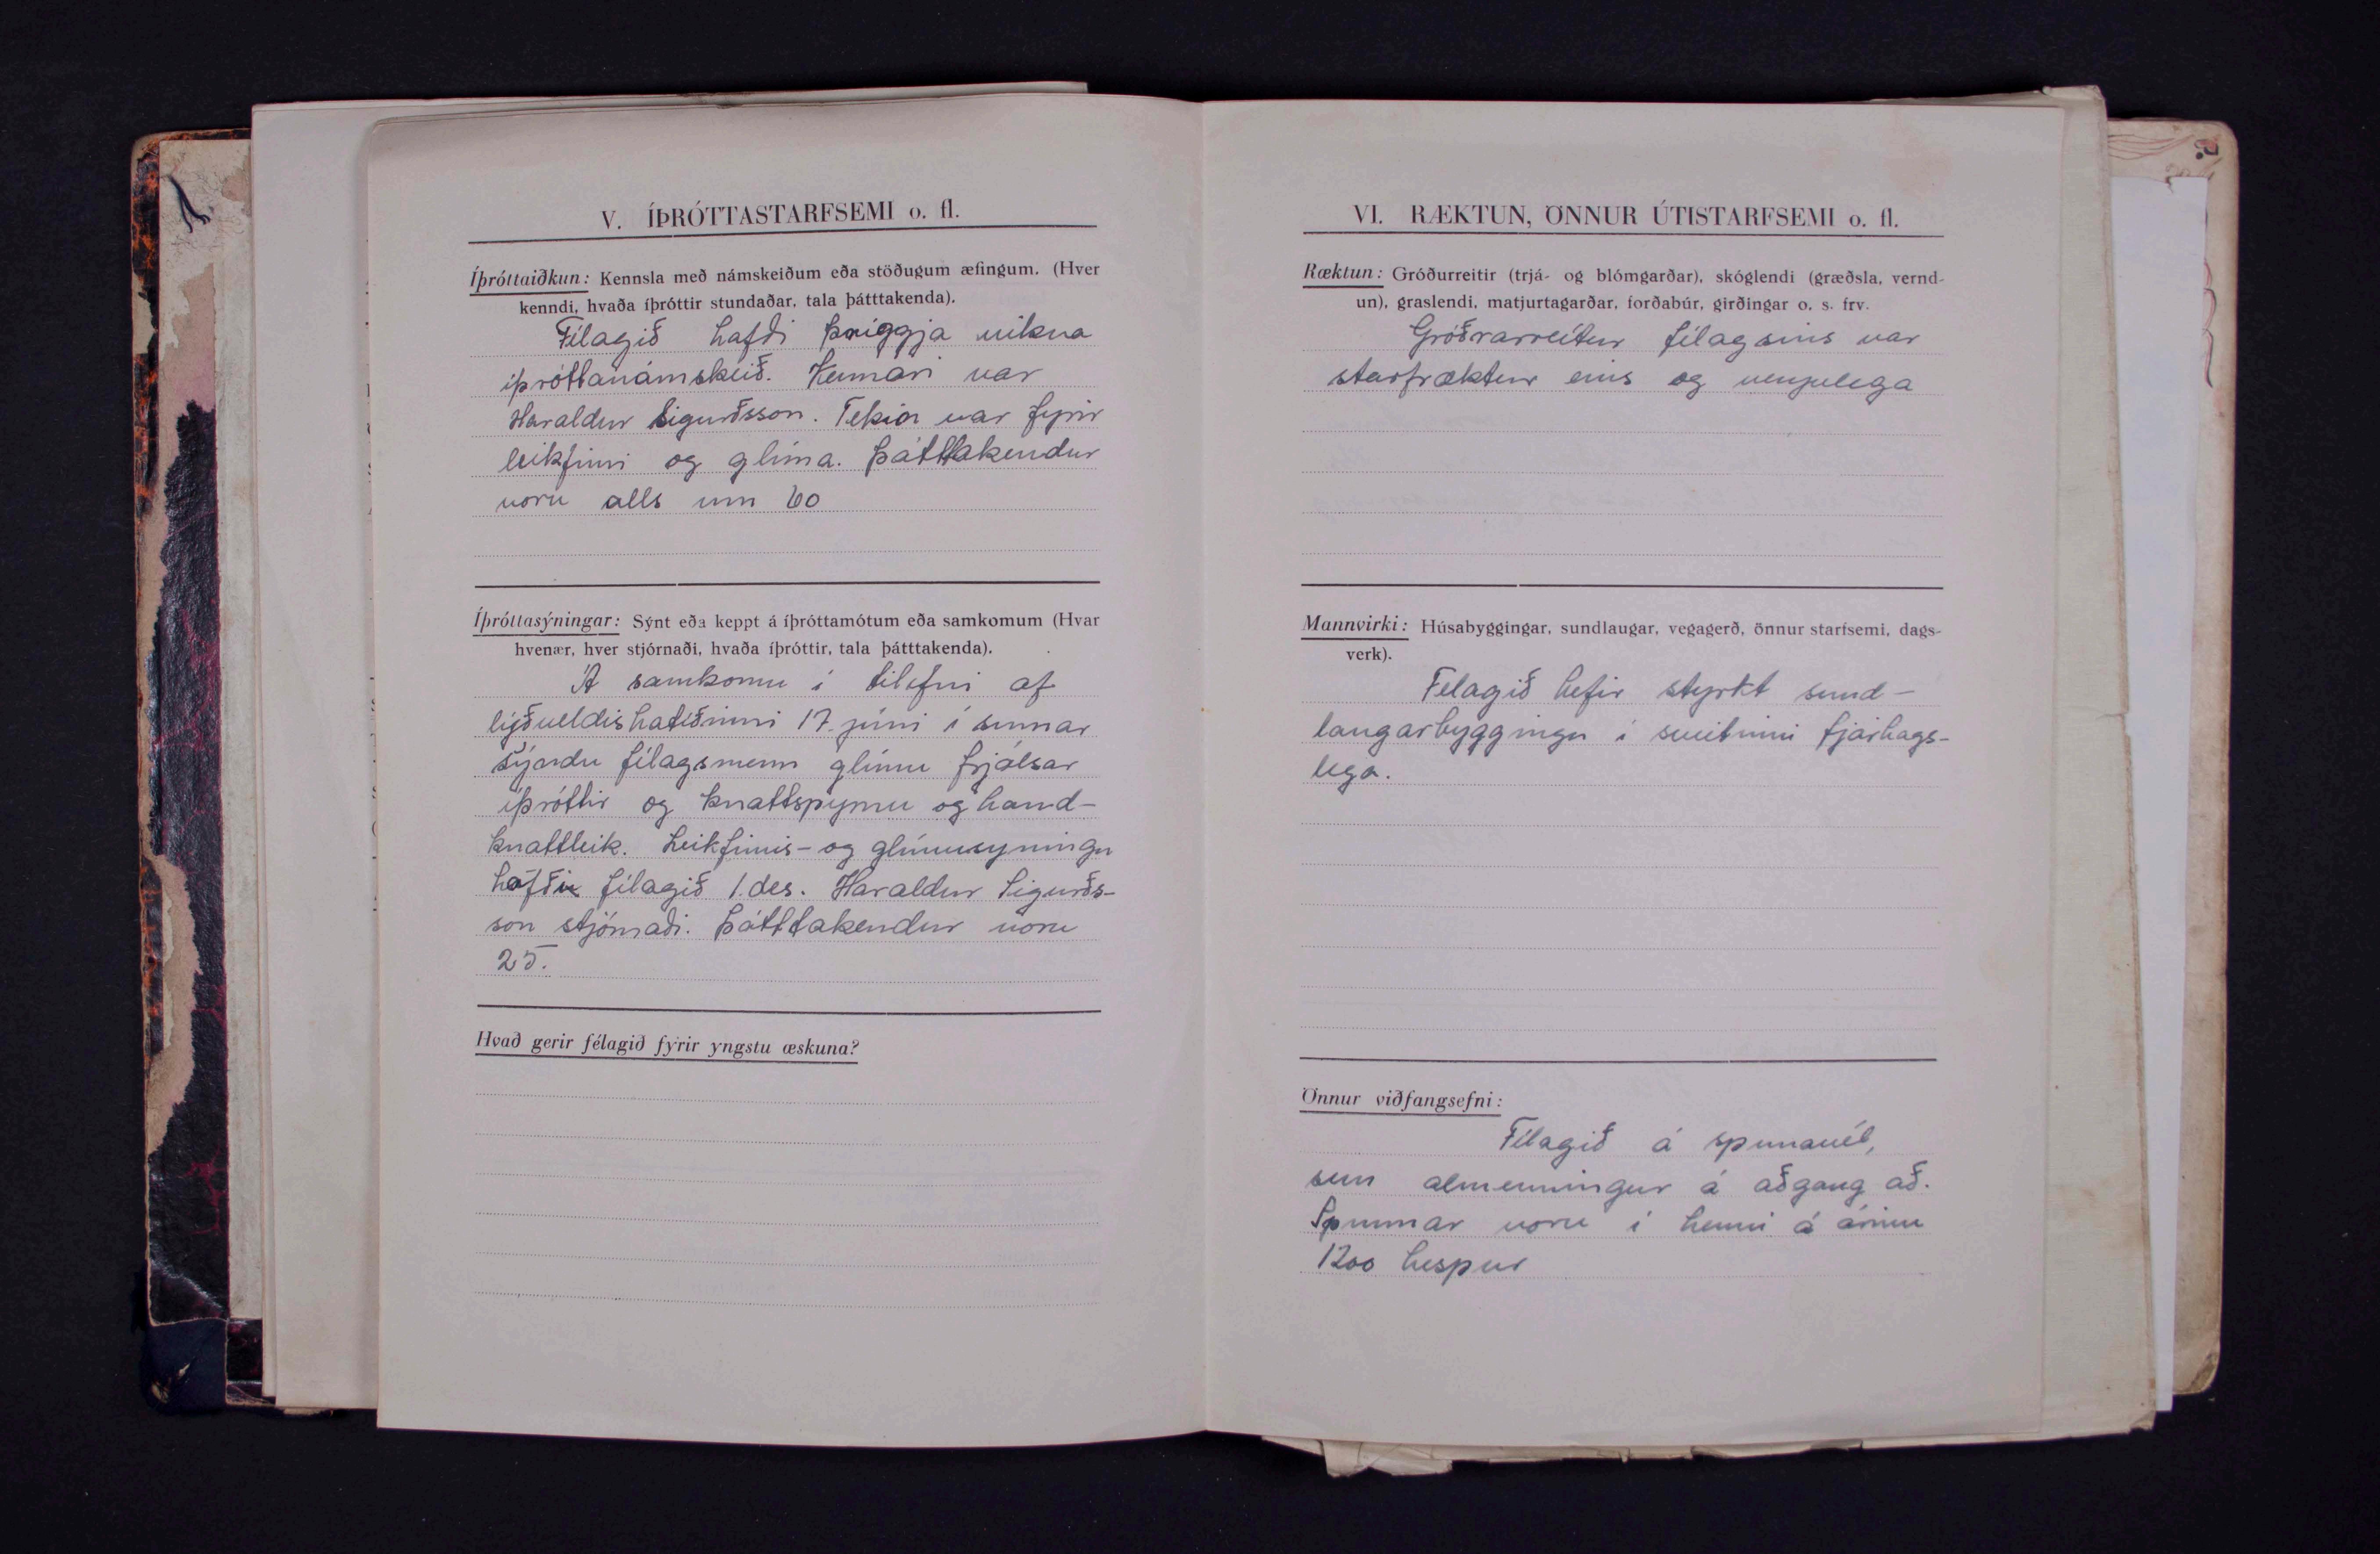 V. ÍÞRÓTTASTARFSEMI o. fl.
Íþróttaiðkun: Kennsla með námskeiðum eða stöðugum æfingum. (Hver
kenndi, hvaða íþróttir stundaðar, tala þátttakenda).
Félagið hafði þriggja vikna
íþróttanámskeið. Kennari var
Haraldur Sigurðsson. Tekin var fyrir
leikfimi og glíma. Þátttakendur
voru alls um 60
Íþróttasýningar: Sýnt eða keppt á íþróttamótum eða samkomum (Hvar
hvenær, hver stjórnaði, hvaða íþróttir, tala þátttakenda).
Á samkomu í tilefni af
lýðveldishatíðinni 17. júni í sumar
sýndu félagsmenn glímu frjálsar
íþróttir og knattspyrnu og hand-
knattleik. Leikfimis- og glímusyningu
hafði félagið 1. des. Haraldur Sigurðs-
son stjórnaði. Þátttakendur voru
25.
Hvað gerir félagið fyrir yngstu æskuna?
VI. RÆKTUN, ÖNNUR ÚTISTARFSEMI o. fl.
Ræktun: Gróðurreitir (trjá- og blómgarðar), skóglendi (græðsla, vernd-
un), graslendi, matjurtagarðar, forðabúr, girðingar o. s. frv.
Gróðrarreítur félagsins var
starfræktur eins og venjulega
Mannvirki: Húsabyggingar, sundlaugar, vegagerð, önnur starfsemi, dags-
verk).
Felagið hefir styrkt sund-
laugarbyggingu í sveitinni fjárhags-
lega.
Önnur viðfangsefni:
Félagið á spunavél,
sem almenningur á aðgang að.
Spunnar voru í henni á árinu
1200 hespur